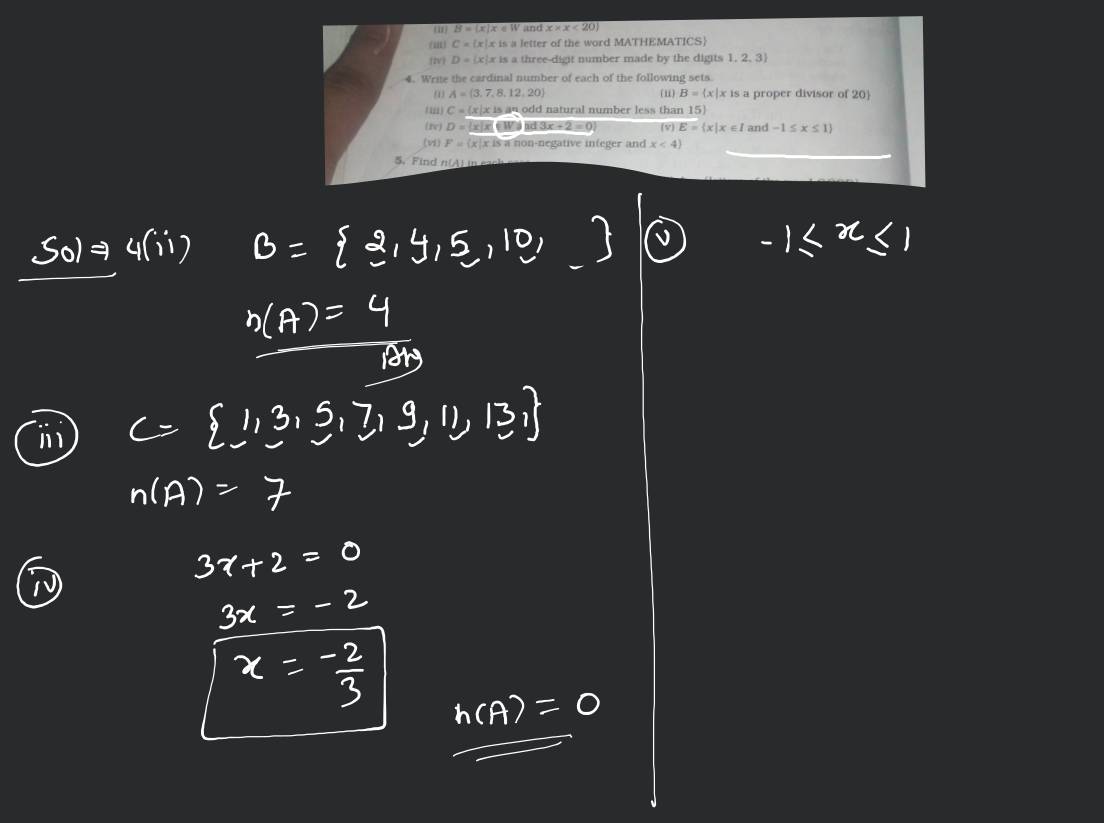 (ii) B = {x|x ∈ W and x × x < 20}
(iii) C = {x|x is a letter of the word MATHEMATICS}
(iv) D = {x|x is a three-digit number made by the digits 1, 2, 3}
4. Write the cardinal number of each of the following sets.
(i) A = {3, 7, 8, 12, 20} (ii) B = {x|x is a proper divisor of 20}
(iii) C = {x|x is an odd natural number less than 15}
(iv) D = {x|x ∈ W and 3x + 2 = 0} (v) E = {x|x ∈ I and -1 ≤ x ≤ 1}
(vi) F = {x|x is a non-negative integer and x < 4}
5. Find n(A) in each
Sol ⇒ 4(ii) B = { 2, 4, 5, 10, _ }
n(A) = 4
Ans
(iii) C = { 1, 3, 5, 7, 9, 11, 13, }
n(A) = 7
(iv) 3x + 2 = 0
3x = -2
x = -2/3
n(A) = 0
(v) -1 ≤ x ≤ 1